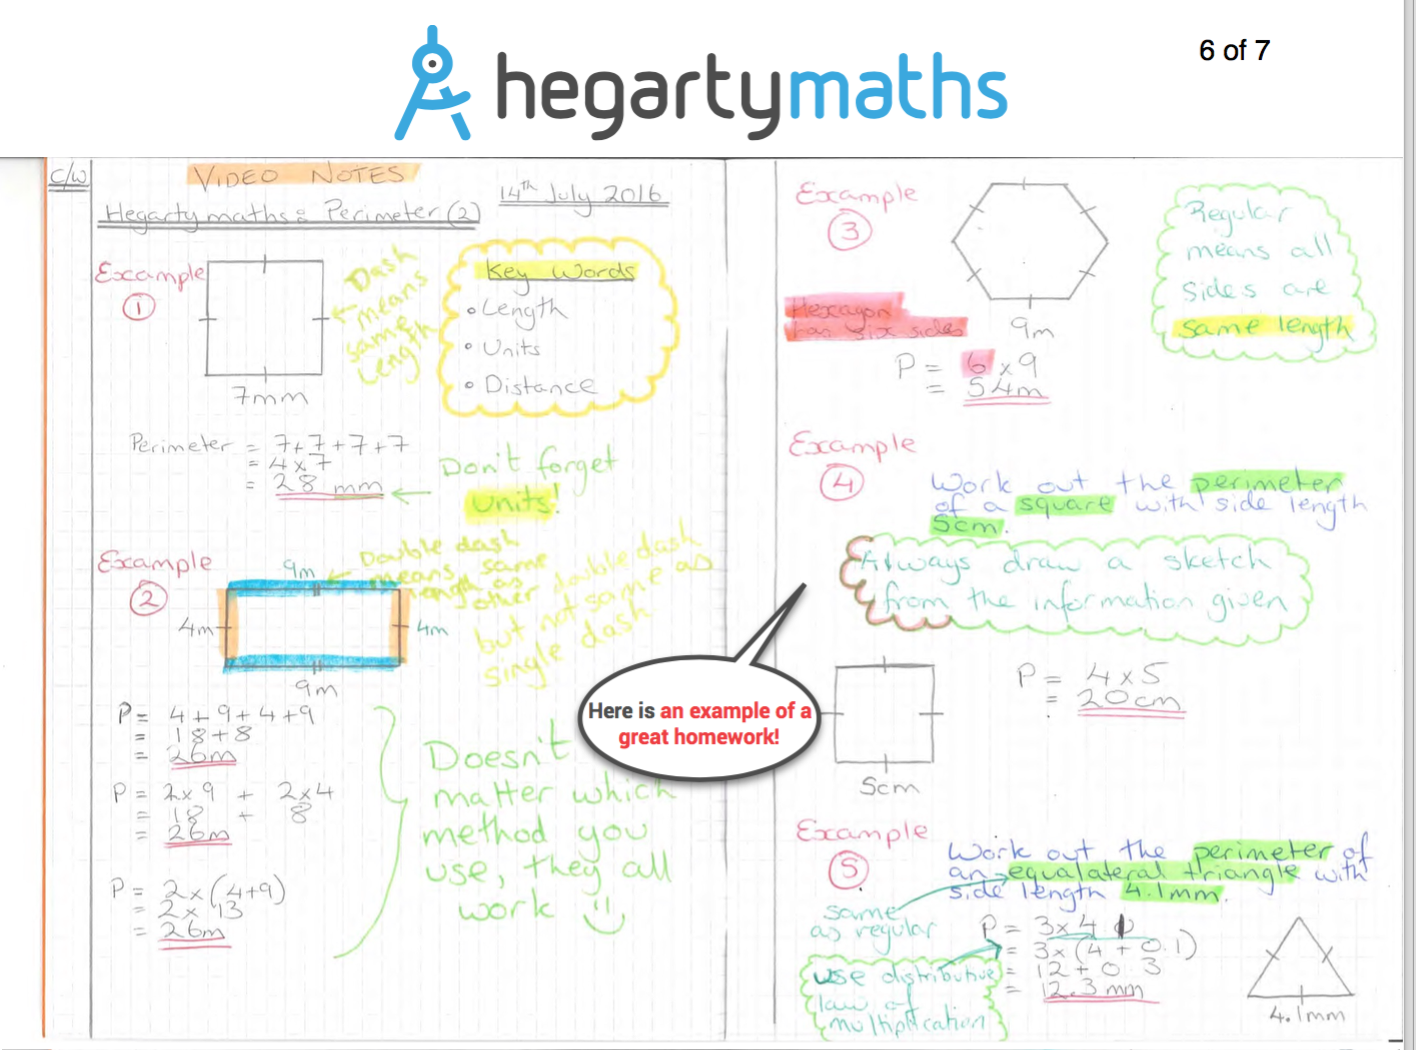 6 of 7
hegartymaths
C/W
VIDEO NOTES
14th July 2016
Hegartymaths: Perimeter (2)
Example
1
7mm
Dash
means
same
length
Key Words
• Length
• Units
• Distance
Perimeter = 7+7+7+7
= 4x7
= 28 mm
Don't forget
Units!
Example
2
9m
4m
4m
9m
Double dash
means same
length as
other double dash
but not same as
single dash
P= 4+9+4+9
= 18+8
= 26m
P= 2x9 + 2x4
= 18 + 8
= 26m
P= 2x(4+9)
= 2x 13
= 26m
Doesn't
matter which
method you
use, they all
work
Here is an example of a
great homework!
Example
3
Hexagon
has six sides
9m
P = 6 x 9
= 54m
Regular
means all
sides are
same length
Example
4
Work out the perimeter
of a square with side length
5cm.
Always draw a sketch
from the information given
5cm
P = 4x5
= 20cm
Example
5
Work out the perimeter of
an equalateral triangle with
side length 4.1mm.
same
as regular
use distributive
law of
multiplication
P = 3x4.1
= 3x(4 + 0.1)
= 12+0.3
= 12.3 mm
4.1mm